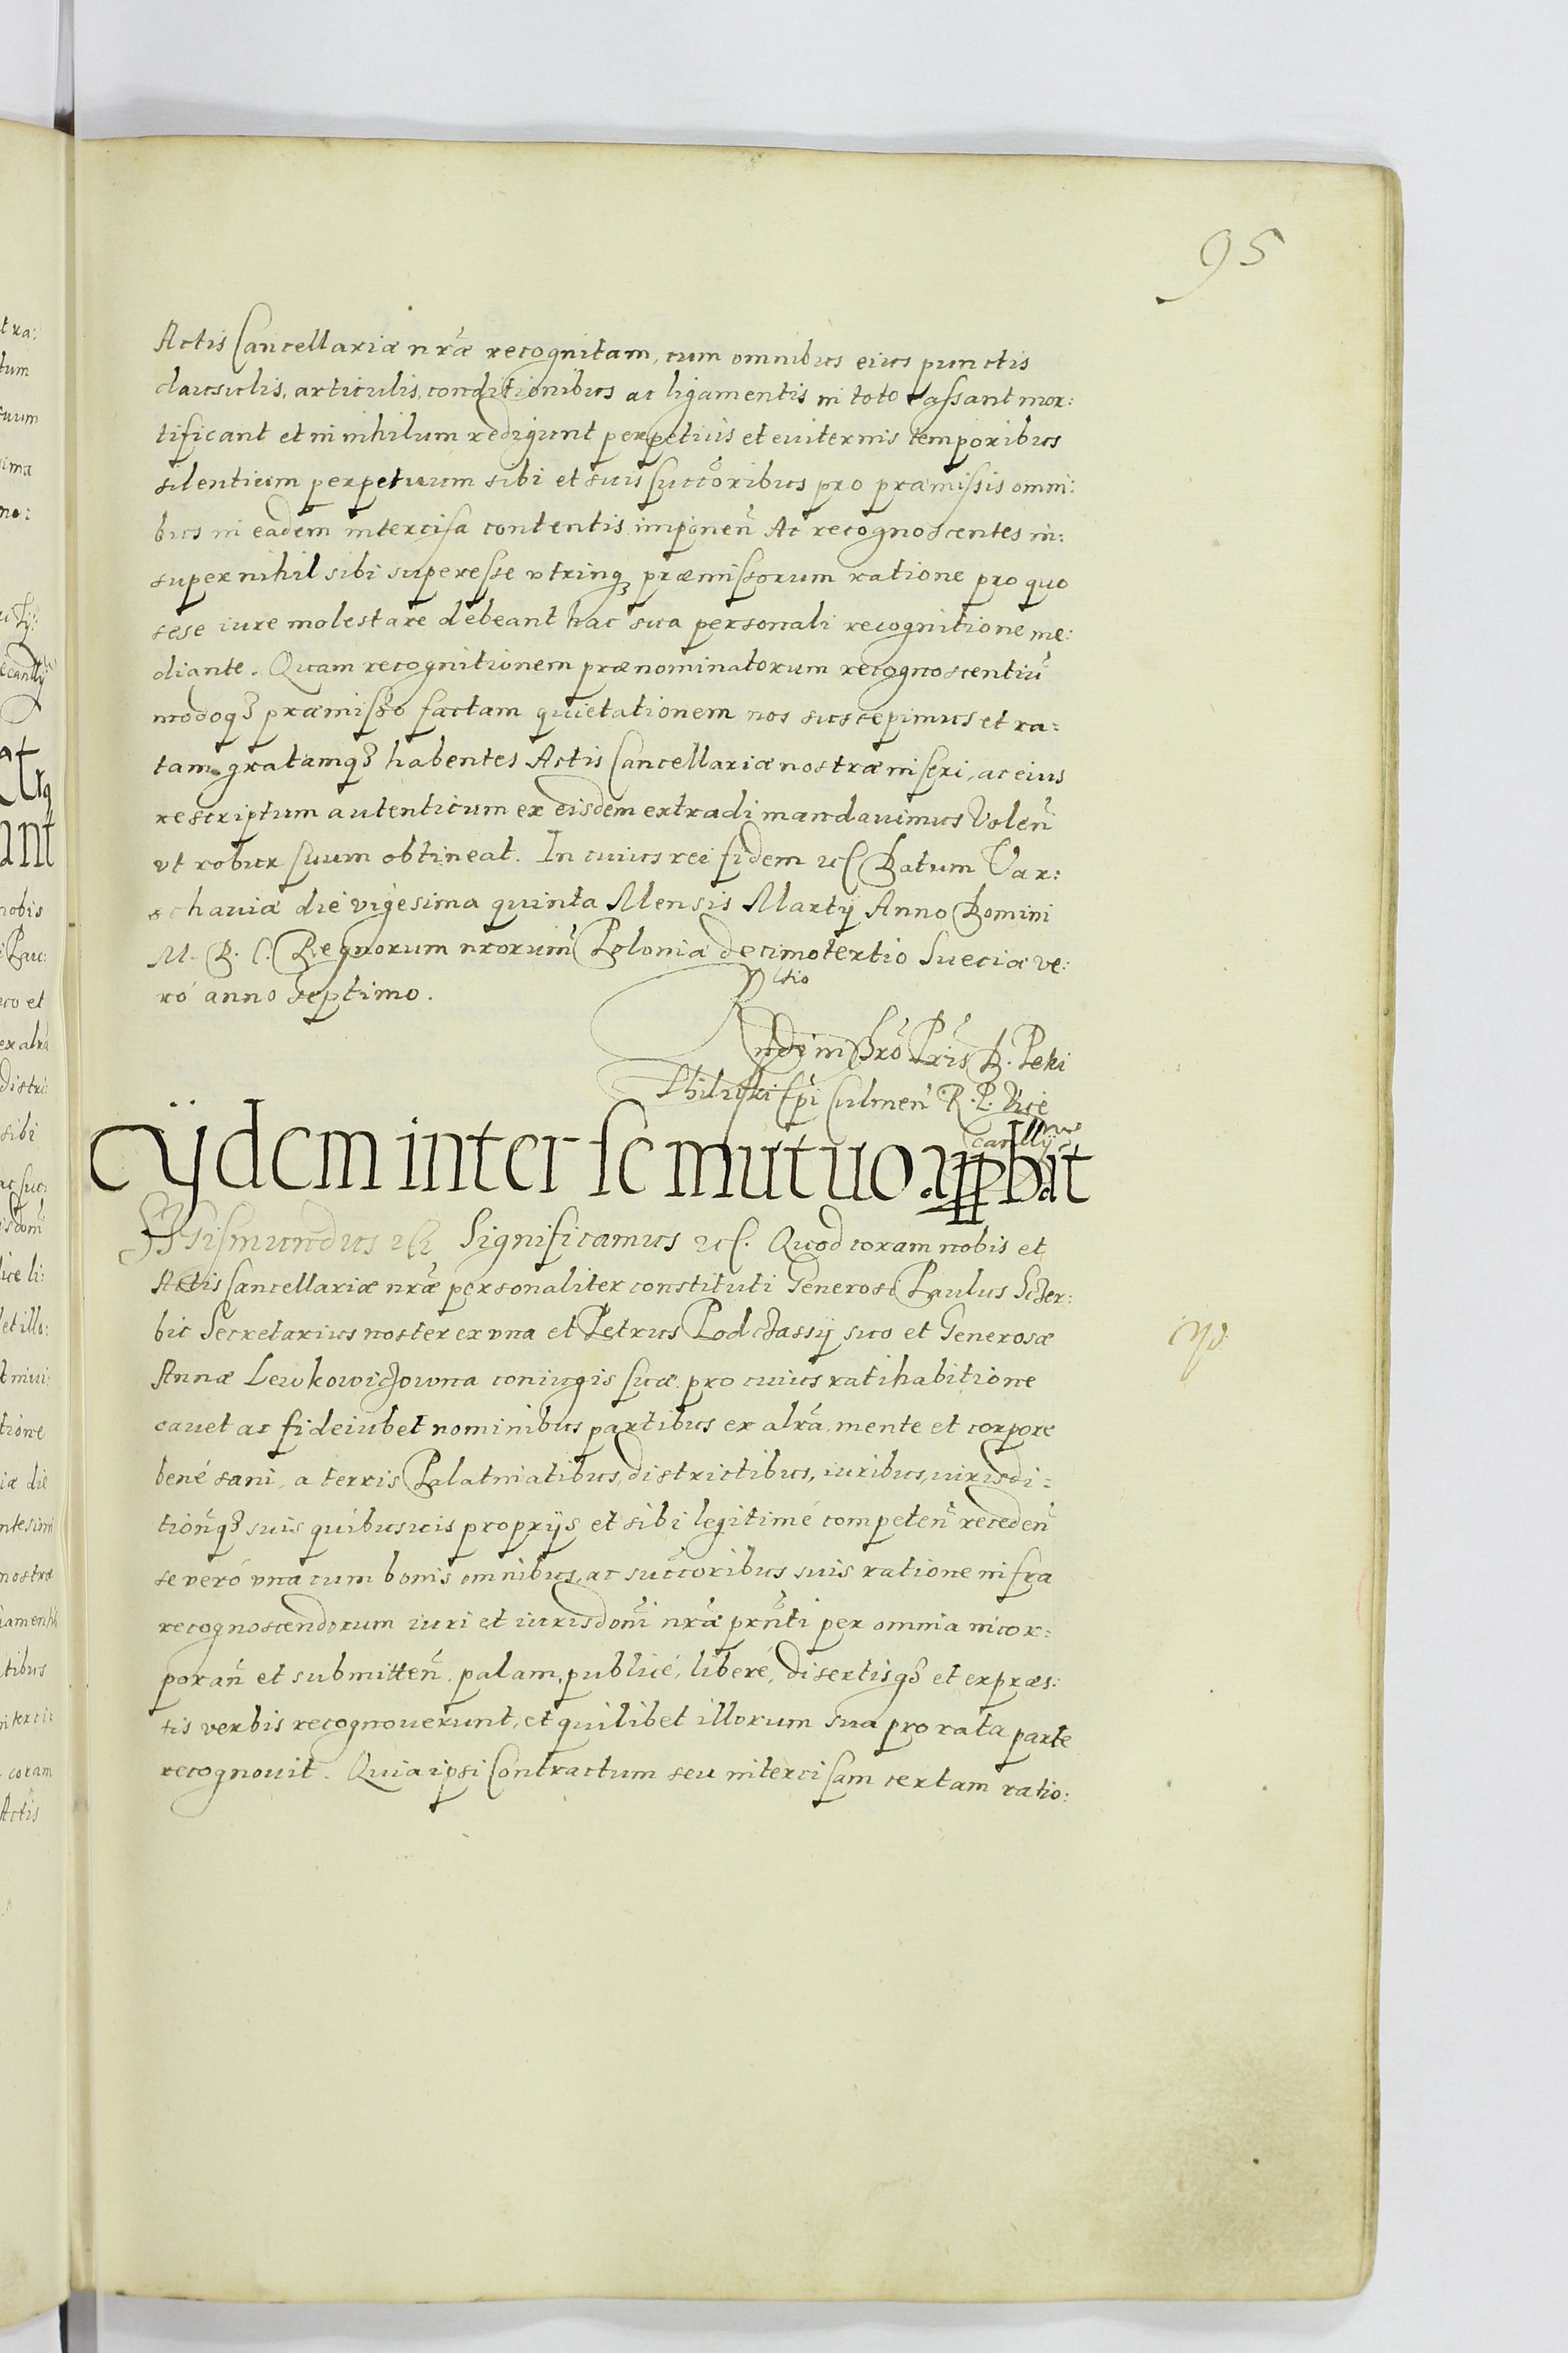 95
Actis Cancellariæ nr̃æ recognitam, cum omnibus eius punctis
clausulis, articulis, conditionibus ac ligamentis in toto cassant mor:
tificant et in nihilum redigunt perpetuis et euiternis temporibus
silentium perpetuum sibi et suis succ̃oribus pro præmissis omni:
bus in eadem intercisa contentis imponeñ Ac recognoscentes in:
super nihil sibi superesse vtrinq præmissorum ratione pro quo
sese iure molestare debeant hac sua personali recognitione me:
diante. Quam recognitionem prænominatorum recognoscentiũ
modoq præmisso factam quietationem nos suscepimus et ra:
tam gratamq habentes Actis Cancellariæ nostræ inseri, ac eius
rescriptum autenticum ex eisdem extradi mandauimus Voleñ
vt robur suum obtineat. In cuius rei fidem etc Datum Var:
schauiæ die vigesima quinta Mensis Martij Anno Domini
M. D. C. Regnorum nrorum̃ Poloniæ decimotertio Sueciæ ve:
ró anno septimo.
R. P. Vice
cancllij
Eijdem inter se mutuo
Sigismundus etc Significamus etc. Quod coram nobis et
Actis Cancellariæ nr̃æ personaliter constituti Generosi Paulus Sczer:
bic Secretarius noster ex vna et Petrus Podczassij suo et Generosæ
Annæ Lewkowiczowna coniugis suæ pro cuius ratihabitione
cauet ac fideiubet nominibus partibus ex alr̃a, mente et corpore
bené sani, a terris Palatinatibus, districtibus, iuribus, iurisdi:
tioñq suis quibusuis proprijs et sibi legitimé competeñ recedeñ
se veró vna cum bonis omnibus, ac succ̃oribus suis ratione infra
recognoscendorum iuri et iurisdom̃i nr̃æ prñti per omnia incor:
porañ et submitteñ palam, publicé, liberé, disertisq et expræs:
sis verbis recognouerunt, et quilibet illorum sua pro rata parte
recognouit. Quia ipsi Contractum seu intercisam certam ratio: